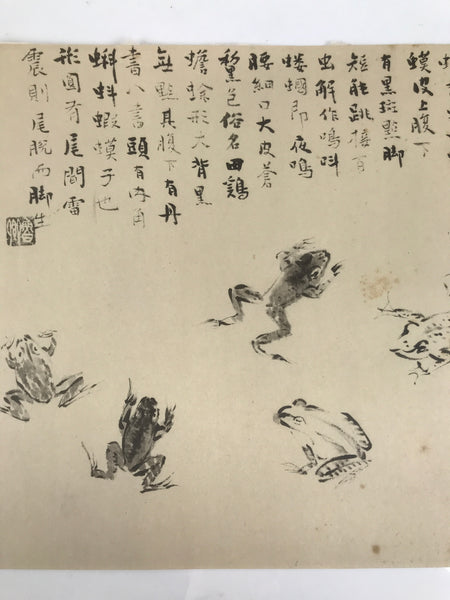 蟆皮上腹下
有黑斑點脚
短能跳接百
虫解作鳴呌
螻蟈即夜鳴
腰細口大皮蒼
黧色俗名田鷄
蟾蜍形大背黑
無點其腹下有丹
書八頭有肉角
蝌蚪蝦蟆子也
形圓有尾間雷
震則尾脫而脚生